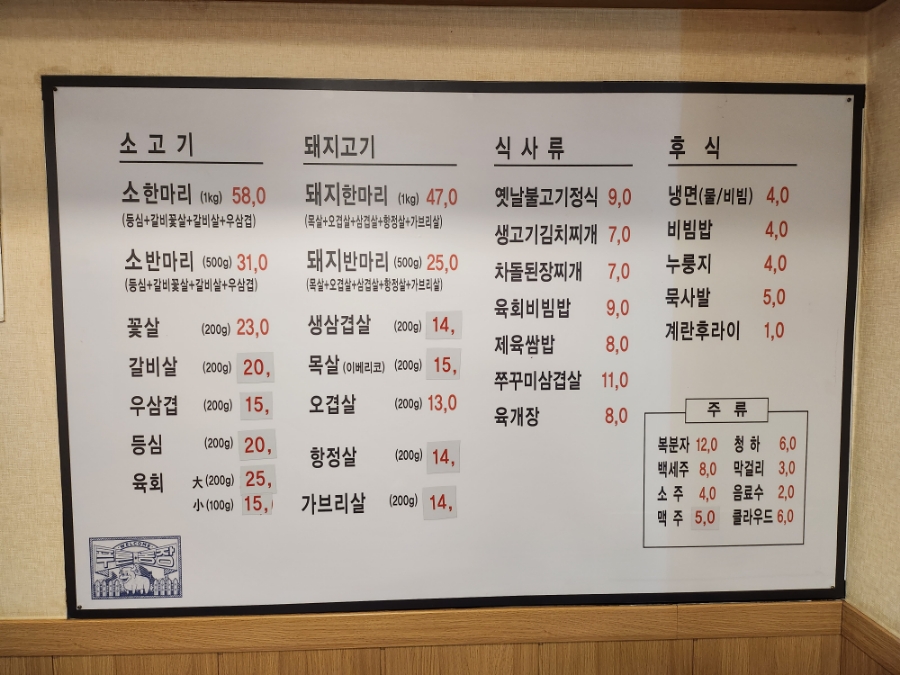 소고기
소한마리 (1kg) 58,0
(등심+갈비꽃살+갈비살+우삼겹)
소반마리 (500g) 31,0
(등심+갈비꽃살+갈비살+우삼겹)
꽃살 (200g) 23,0
갈비살 (200g) 20,
우삼겹 (200g) 15,
등심 (200g) 20,
육회 大(200g) 25,
小(100g) 15,
돼지고기
돼지한마리 (1kg) 47,0
(목살+오겹살+삼겹살+항정살+가브리살)
돼지반마리 (500g) 25,0
(목살+오겹살+삼겹살+항정살+가브리살)
생삼겹살 (200g) 14,
목살(이베리코) (200g) 15,
오겹살 (200g) 13,0
항정살 (200g) 14,
가브리살 (200g) 14,
식사류
옛날불고기정식 9,0
생고기김치찌개 7,0
차돌된장찌개 7,0
육회비빔밥 9,0
제육쌈밥 8,0
쭈꾸미삼겹살 11,0
육개장 8,0
후식
냉면(물/비빔) 4,0
비빔밥 4,0
누룽지 4,0
묵사발 5,0
계란후라이 1,0
주류
복분자 12,0 청하 6,0
백세주 8,0 막걸리 3,0
소주 4,0 음료수 2,0
맥주 5,0 클라우드 6,0
WELCOME